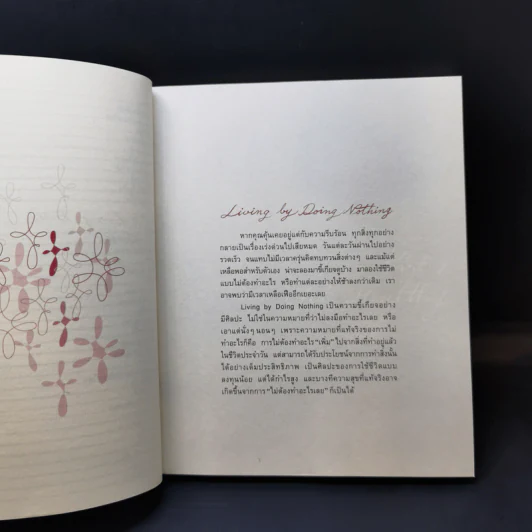 Living by Doing Nothing
หากคุณคุ้นเคยอยู่แต่กับความรีบร้อน ทุกสิ่งทุกอย่าง
กลายเป็นเรื่องเร่งด่วนไปเสียหมด วันแต่ละวันผ่านไปอย่าง
รวดเร็ว จนแทบไม่มีเวลาครุ่นคิดทบทวนสิ่งต่างๆ และแม้แต่
เหลือพอสำหรับตัวเอง น่าจะลองมาขี้เกียจดูบ้าง มาลองใช้ชีวิต
แบบไม่ต้องทำอะไร หรือทำแต่ละอย่างให้ช้าลงกว่าเดิม เรา
อาจพบว่ามีเวลาเหลือเฟืออีกเยอะเลย
Living by Doing Nothing เป็นความขี้เกียจอย่าง
มีศิลปะ ไม่ใช่ในความหมายที่ว่าไม่ลงมือทำอะไรเลย หรือ
เอาแต่นั่งๆ นอนๆ เพราะความหมายที่แท้จริงของการไม่
ทำอะไรก็คือ การไม่ต้องทำอะไร "เพิ่ม" ไปจากสิ่งที่ทำอยู่แล้ว
ในชีวิตประจำวัน แต่สามารถได้รับประโยชน์จากการทำสิ่งนั้น
ได้อย่างเต็มประสิทธิภาพ เป็นศิลปะของการใช้ชีวิตแบบ
ลงทุนน้อย แต่ได้กำไรสูง และบางทีความสุขที่แท้จริงอาจ
เกิดขึ้นจากการ "ไม่ต้องทำอะไรเลย" ก็เป็นได้